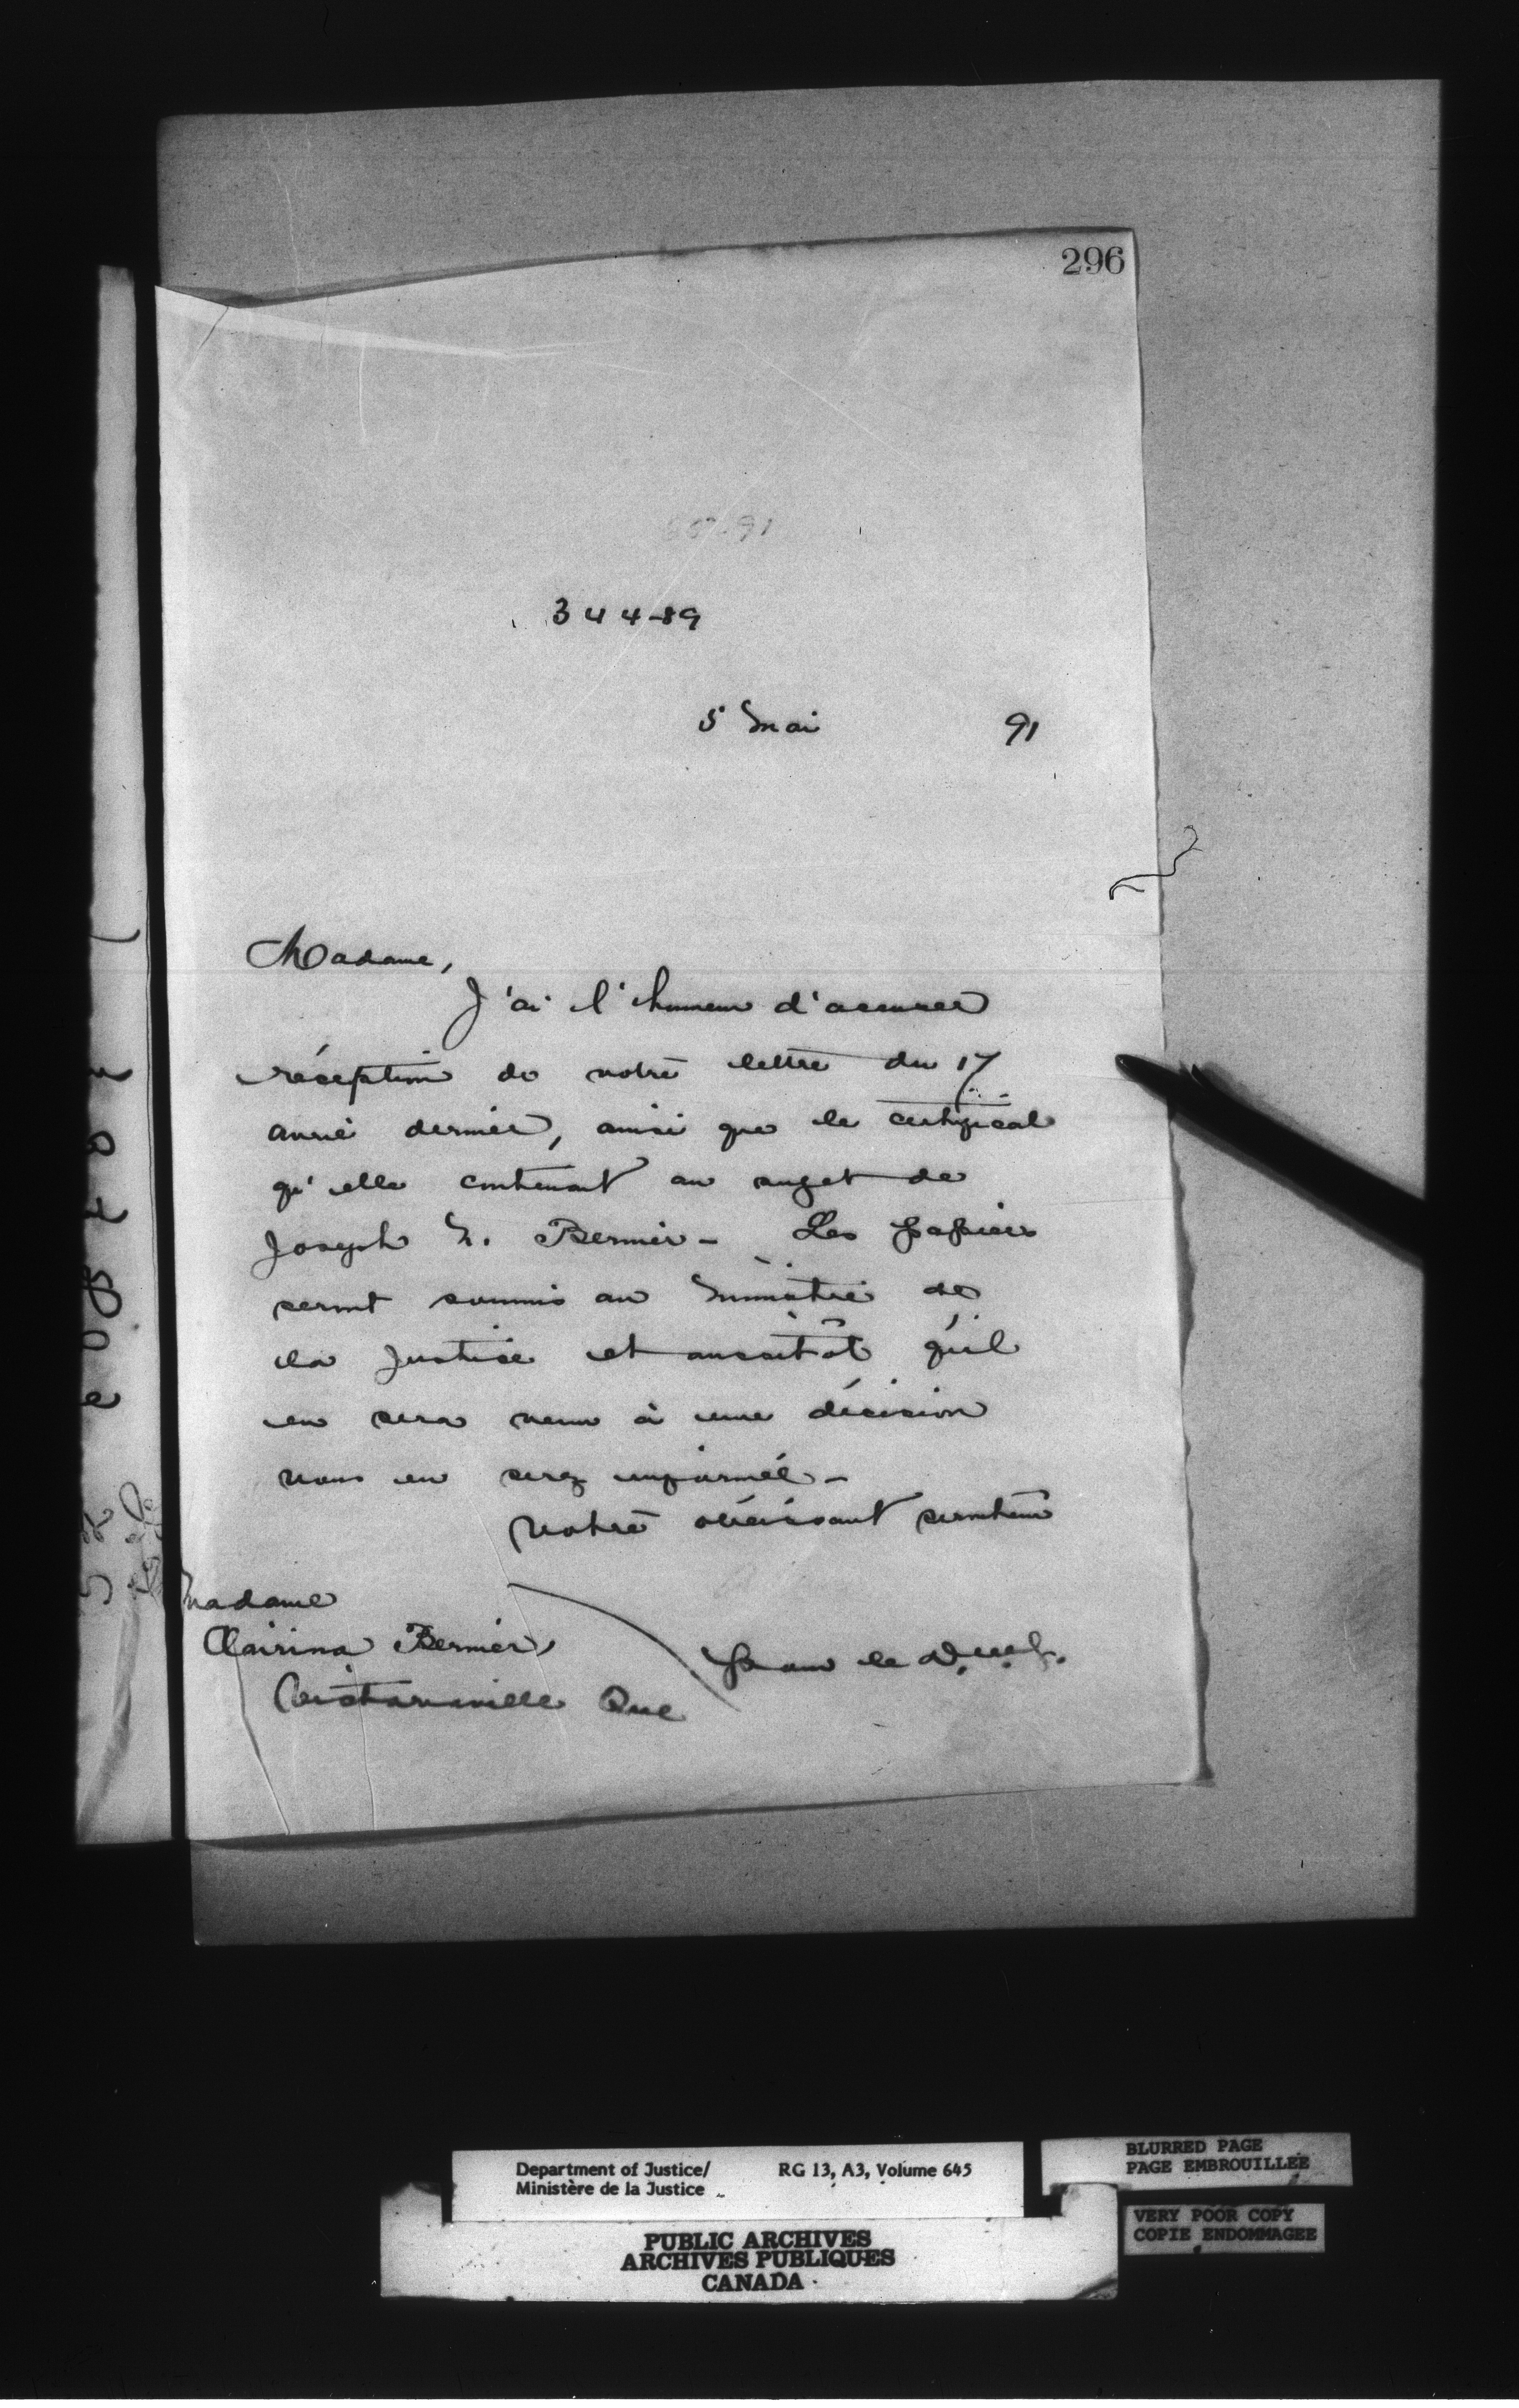 296
344-89
5 Mai 91
Madame,
J'ai l'honneur d'accuser
réception de votre lettre du 17
avril dernier, ainsi que le certificat
qu'elle contenait au sujet de
Joseph N. Bernier - Les papiers
seront soumis au Ministre de
la Justice et aussitôt qu'il
en sera venu à une décision
vous en serez informée -
Votre obéissant serviteur
Madame
Bernier,
Que
pour le D.M.J.
Department of Justice/
Ministère de la Justice
RG 13, A3, Volume 645
BLURRED PAGE
PAGE EMBROUILLEE
VERY POOR COPY
COPIE ENDOMMAGEE
PUBLIC ARCHIVES
ARCHIVES PUBLIQUES
CANADA